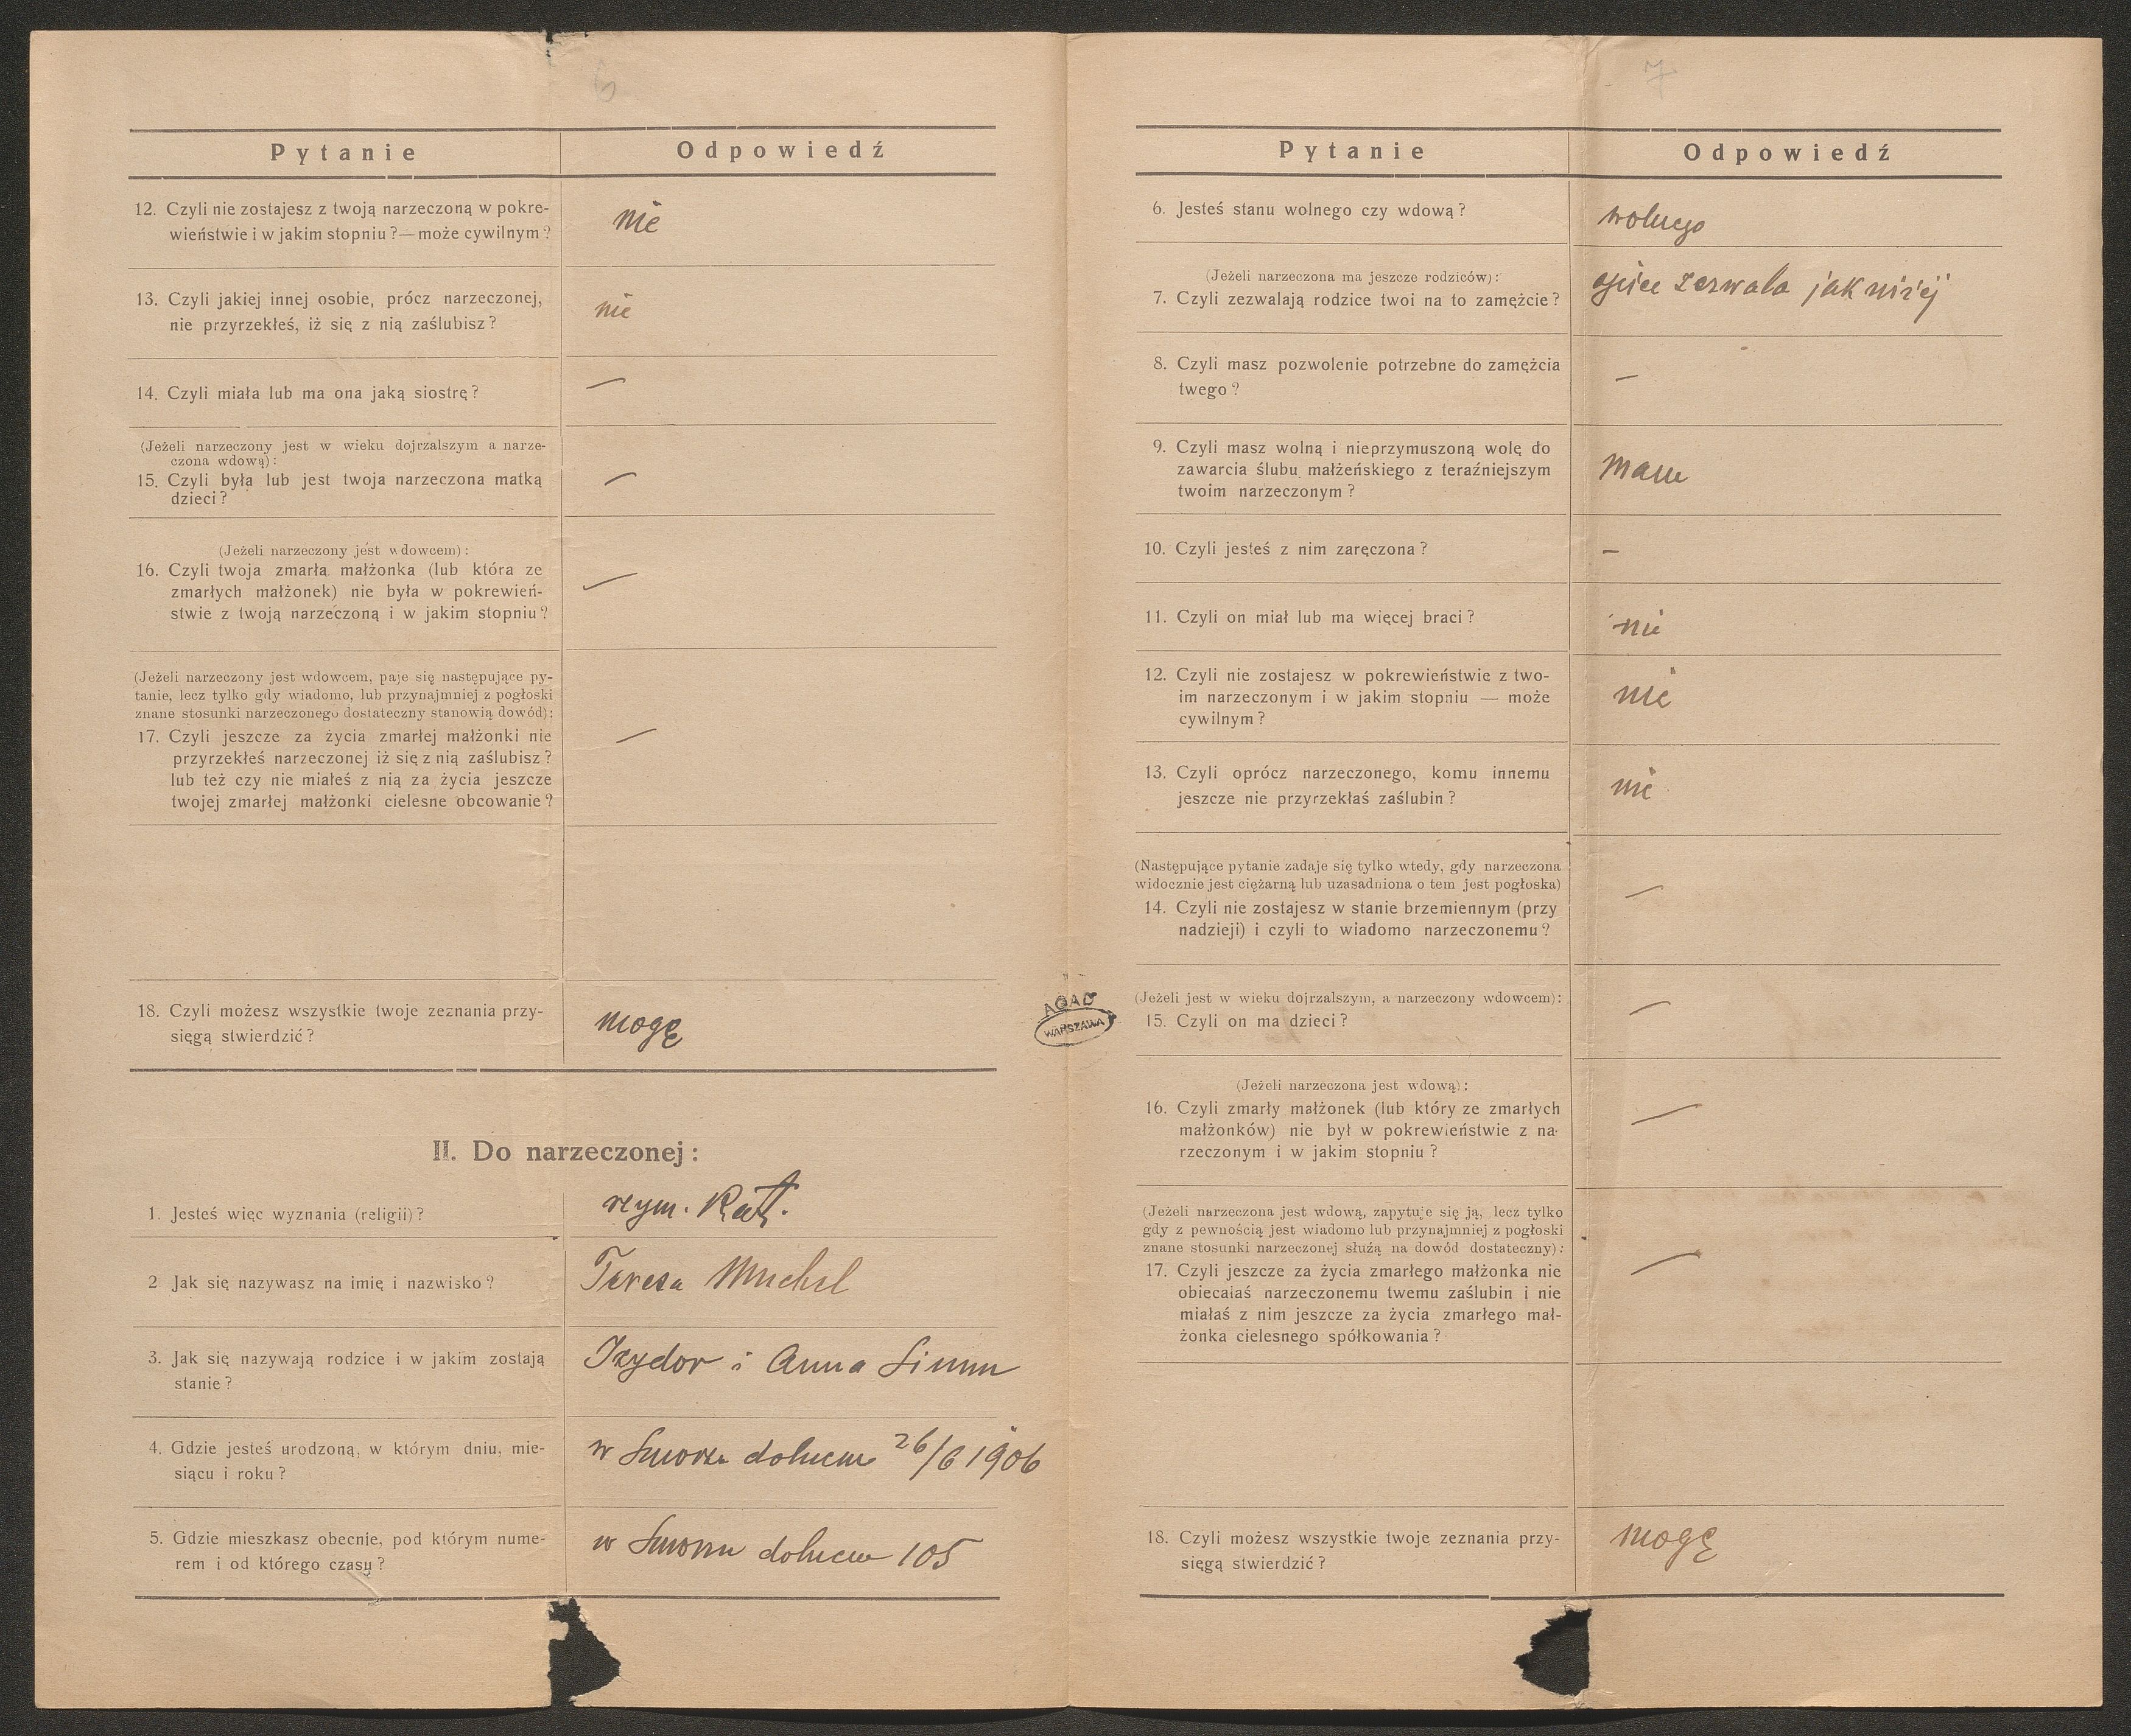 6
Pytanie
Odpowiedź
12. Czyli nie zostajesz z twoją narzeczoną w pokre-
wieństwie i w jakim stopniu?—może cywilnym?
nie
13. Czyli jakiej innej osobie, prócz narzeczonej,
nie przyrzekłeś, iż się z nią zaślubisz?
nie
14. Czyli miała lub ma ona jaką siostrę?
—
(Jeżeli narzeczony jest w wieku dojrzalszym a narze-
czona wdową):
15. Czyli była lub jest twoja narzeczona matką
dzieci?
—
(Jeżeli narzeczony jest wdowcem):
16. Czyli twoja zmarła małżonka (lub która ze
zmarłych małżonek) nie była w pokrewień-
stwie z twoją narzeczoną i w jakim stopniu?
—
(Jeżeli narzeczony jest wdowcem, paje się następujące py-
tanie, lecz tylko gdy wiadomo, lub przynajmniej z pogłoski
znane stosunki narzeczonego dostateczny stanowią dowód):
17. Czyli jeszcze za życia zmarłej małżonki nie
przyrzekłeś narzeczonej iż się z nią zaślubisz?
lub też czy nie miałeś z nią za życia jeszcze
twojej zmarłej małżonki cielesne obcowanie?
—
18. Czyli możesz wszystkie twoje zeznania przy-
sięgą stwierdzić?
mogę
II. Do narzeczonej:
1. Jesteś więc wyznania (religii)?
rzym. kat.
2 Jak się nazywasz na imię i nazwisko?
Teresa Muchel
3. Jak się nazywają rodzice i w jakim zostają
stanie?
Izydor i Anna Simm
4. Gdzie jesteś urodzoną, w którym dniu, mie-
siącu i roku?
w Smorzu dolnem 26/6 1906
5. Gdzie mieszkasz obecnie, pod którym nume-
rem i od którego czasu?
w Smorzu dolnem 105
AGAD
WARSZAWA
7
Pytanie
Odpowiedź
6. Jesteś stanu wolnego czy wdową?
wolnego
(Jeżeli narzeczona ma jeszcze rodziców):
7. Czyli zezwalają rodzice twoi na to zamężcie?
ojciec zezwala jak niżej
8. Czyli masz pozwolenie potrzebne do zamężcia
twego?
—
9. Czyli masz wolną i nieprzymuszoną wolę do
zawarcia ślubu małżeńskiego z teraźniejszym
twoim narzeczonym?
mam
10. Czyli jesteś z nim zaręczona?
—
11. Czyli on miał lub ma więcej braci?
nie
12. Czyli nie zostajesz w pokrewieństwie z two-
im narzeczonym i w jakim stopniu — może
cywilnym?
nie
13. Czyli oprócz narzeczonego, komu innemu
jeszcze nie przyrzekłaś zaślubin?
nie
(Następujące pytanie zadaje się tylko wtedy, gdy narzeczona
widocznie jest ciężarną lub uzasadniona o tem jest pogłoska)
14. Czyli nie zostajesz w stanie brzemiennym (przy
nadzieji) i czyli to wiadomo narzeczonemu?
—
(Jeżeli jest w wieku dojrzalszym, a narzeczony wdowcem):
15. Czyli on ma dzieci?
—
(Jeżeli narzeczona jest wdową):
16. Czyli zmarły małżonek (lub który ze zmarłych
małżonków) nie był w pokrewieństwie z na-
rzeczonym i w jakim stopniu?
—
(Jeżeli narzeczona jest wdową, zapytuje się ją, lecz tylko
gdy z pewnością jest wiadomo lub przynajmniej z pogłoski
znane stosunki narzeczonej służą na dowód dostateczny):
17. Czyli jeszcze za życia zmarłego małżonka nie
obiecałaś narzeczonemu twemu zaślubin i nie
miałaś z nim jeszcze za życia zmarłego mał-
żonka cielesnego spółkowania?
—
18. Czyli możesz wszystkie twoje zeznania przy-
sięgą stwierdzić?
mogę